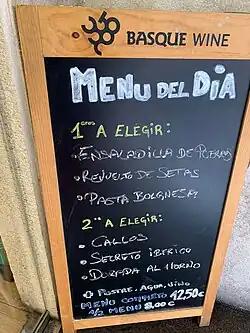 BASQUE WINE
MENU DEL DIA
1eros A ELEGIR:
• ENSALADILLA DE
• REVUELTO DE SETAS
• PASTA BOLOGNESA
2os A ELEGIR:
• CALLOS
• SECRETO IBERICO
• DORADA AL HORNO
+ POSTRE, AGUA, VINO
MENU COMPLETO 12,50€
1/2 MENU 9,00€